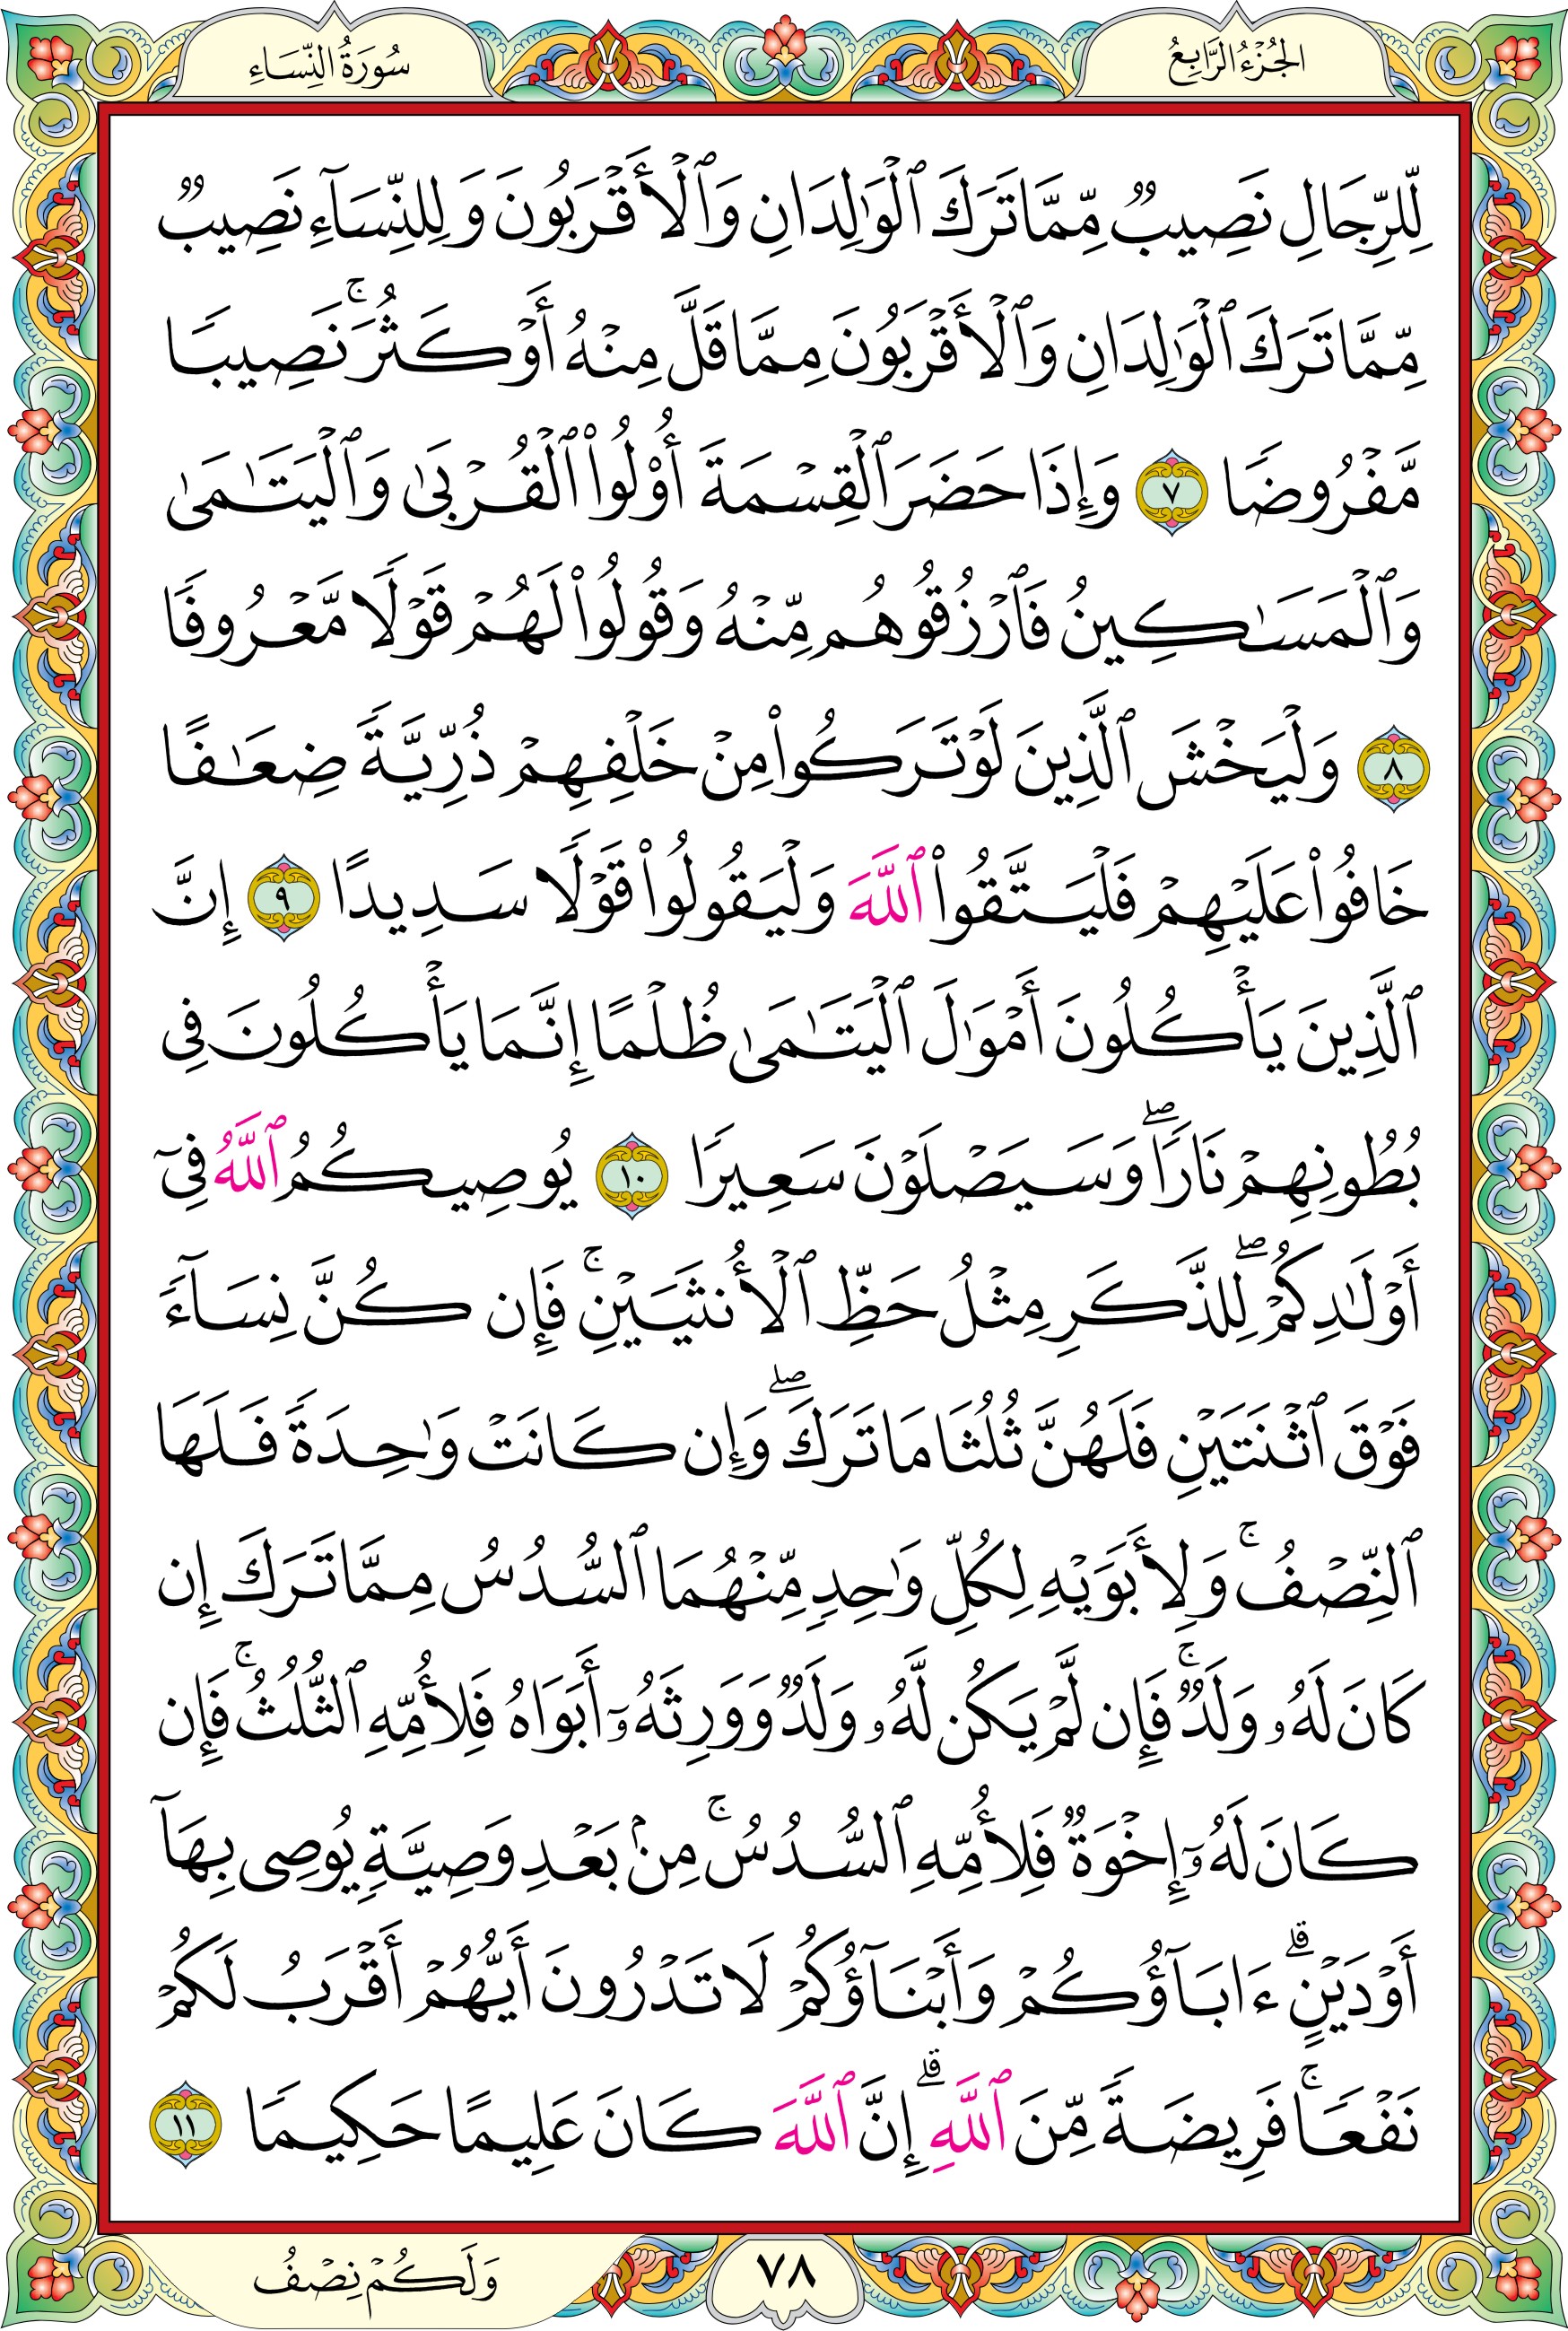 الجُزْءُ الرَّابِعُ
سُورَةُ النِّسَاءِ
لِّلرِّجَالِ نَصِيبٌ مِّمَّا تَرَكَ ٱلْوَٰلِدَانِ وَٱلْأَقْرَبُونَ وَلِلنِّسَآءِ نَصِيبٌ
مِّمَّا تَرَكَ ٱلْوَٰلِدَانِ وَٱلْأَقْرَبُونَ مِمَّا قَلَّ مِنْهُ أَوْ كَثُرَ ۚ نَصِيبًا
مَّفْرُوضًا ٧ وَإِذَا حَضَرَ ٱلْقِسْمَةَ أُو۟لُوا۟ ٱلْقُرْبَىٰ وَٱلْيَتَـٰمَىٰ
وَٱلْمَسَـٰكِينُ فَٱرْزُقُوهُم مِّنْهُ وَقُولُوا۟ لَهُمْ قَوْلًا مَّعْرُوفًا
٨ وَلْيَخْشَ ٱلَّذِينَ لَوْ تَرَكُوا۟ مِنْ خَلْفِهِمْ ذُرِّيَّةً ضِعَـٰفًا
خَافُوا۟ عَلَيْهِمْ فَلْيَتَّقُوا۟ ٱللَّهَ وَلْيَقُولُوا۟ قَوْلًا سَدِيدًا ٩ إِنَّ
ٱلَّذِينَ يَأْكُلُونَ أَمْوَٰلَ ٱلْيَتَـٰمَىٰ ظُلْمًا إِنَّمَا يَأْكُلُونَ فِى
بُطُونِهِمْ نَارًا ۖ وَسَيَصْلَوْنَ سَعِيرًا ١٠ يُوصِيكُمُ ٱللَّهُ فِىٓ
أَوْلَـٰدِكُمْ ۖ لِلذَّكَرِ مِثْلُ حَظِّ ٱلْأُنثَيَيْنِ ۚ فَإِن كُنَّ نِسَآءً
فَوْقَ ٱثْنَتَيْنِ فَلَهُنَّ ثُلُثَا مَا تَرَكَ ۖ وَإِن كَانَتْ وَٰحِدَةً فَلَهَا
ٱلنِّصْفُ ۚ وَلِأَبَوَيْهِ لِكُلِّ وَٰحِدٍ مِّنْهُمَا ٱلسُّدُسُ مِمَّا تَرَكَ إِن
كَانَ لَهُۥ وَلَدٌ ۚ فَإِن لَّمْ يَكُن لَّهُۥ وَلَدٌ وَوَرِثَهُۥٓ أَبَوَاهُ فَلِأُمِّهِ ٱلثُّلُثُ ۚ فَإِن
كَانَ لَهُۥٓ إِخْوَةٌ فَلِأُمِّهِ ٱلسُّدُسُ ۚ مِنۢ بَعْدِ وَصِيَّةٍ يُوصِى بِهَآ
أَوْ دَيْنٍ ۗ ءَابَآؤُكُمْ وَأَبْنَآؤُكُمْ لَا تَدْرُونَ أَيُّهُمْ أَقْرَبُ لَكُمْ
نَفْعًا ۚ فَرِيضَةً مِّنَ ٱللَّهِ ۗ إِنَّ ٱللَّهَ كَانَ عَلِيمًا حَكِيمًا ١١
٧٨
وَلَكُمْ نِصْفُ